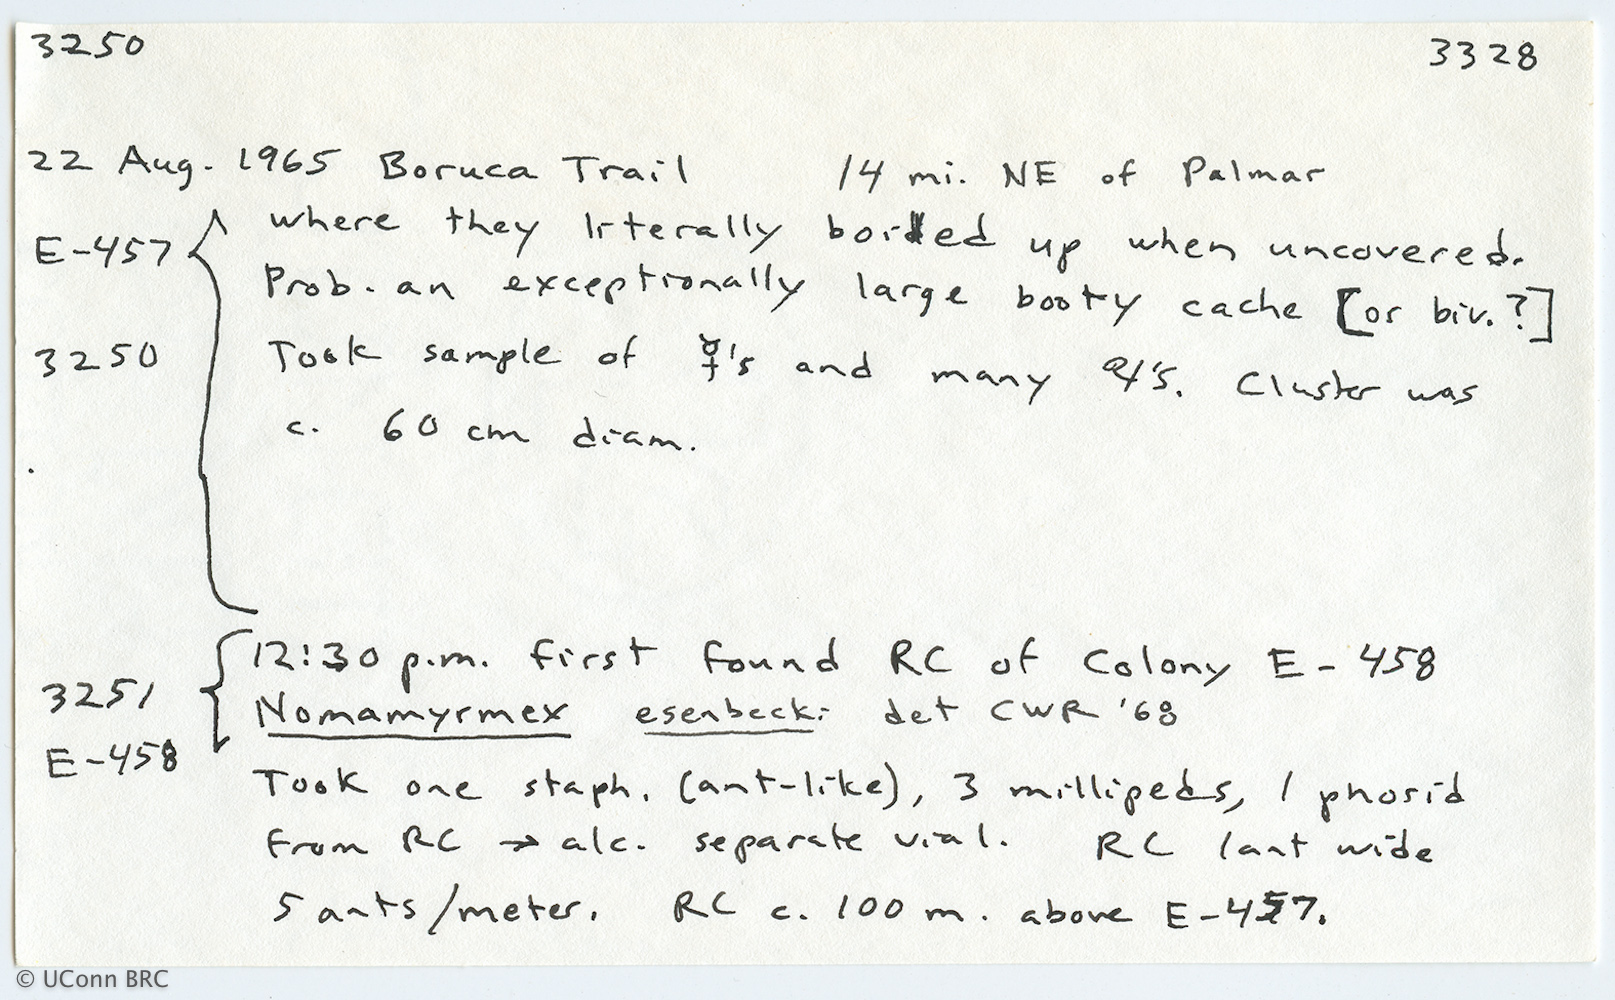 3250 3328
22 Aug. 1965 Boruca Trail 14 mi. NE of Palmar
E-457 where they literally boiled up when uncovered.
Prob. an exceptionally large booty cache [or biv.?]
3250 Took sample of ☿'s and many 's. Cluster was
c. 60 cm diam.
12:30 p.m. first found RC of Colony E-458
3251 Nomamyrmex esenbecki det CWR '68
E-458
Took one staph. (ant-like), 3 millipeds, 1 phorid
from RC → alc. separate vial. RC 1 ant wide
5 ants/meter. RC c. 100 m. above E-457.
© UConn BRC